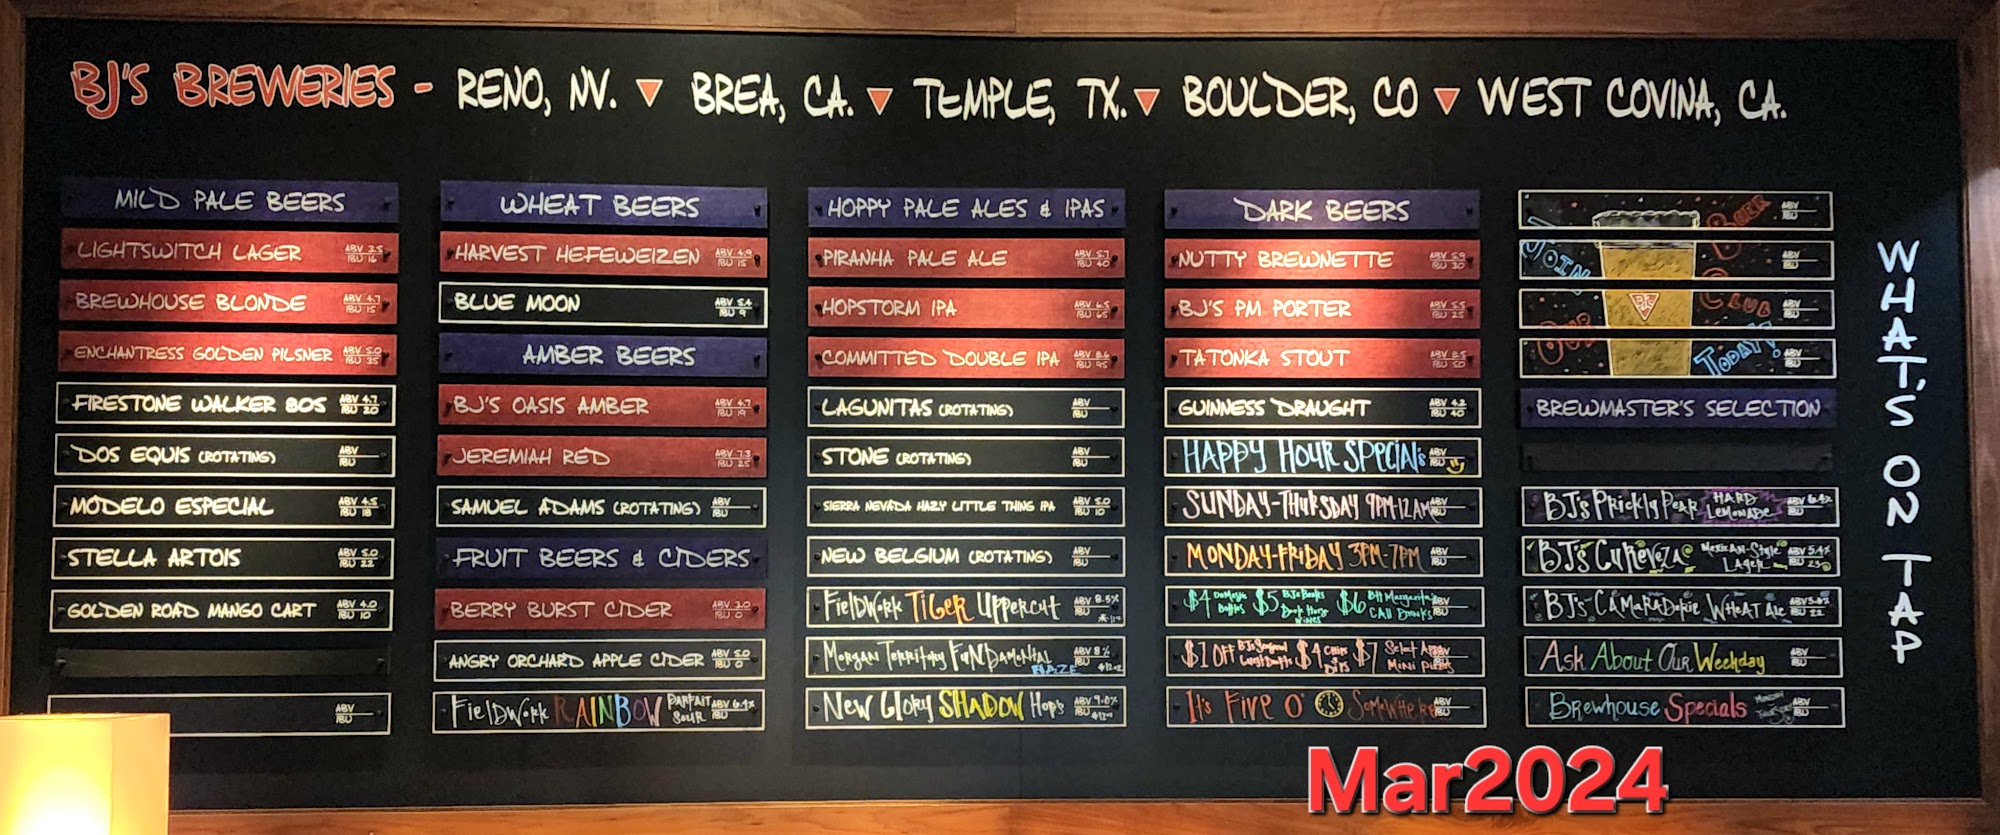 BJ'S BREWERIES - RENO, NV. BREA, CA. TEMPLE, TX. BOULDER, CO WEST COVINA, CA.
MILD PALE BEERS
LIGHTSWITCH LAGER ABV 3.5 IBU 16
BREWHOUSE BLONDE ABV 4.7 IBU 15
ENCHANTRESS GOLDEN PILSNER ABV 5.0 IBU 35
FIRESTONE WALKER 805 ABV 4.7 IBU 20
DOS EQUIS (ROTATING) ABV IBU
MODELO ESPECIAL ABV 4.5 IBU 18
STELLA ARTOIS ABV 5.0 IBU 22
GOLDEN ROAD MANGO CART ABV 4.0 IBU 10
ABV IBU
WHEAT BEERS
HARVEST HEFEWEIZEN ABV 4.9 IBU 15
BLUE MOON ABV 5.4 IBU 9
AMBER BEERS
BJ'S OASIS AMBER ABV 4.7 IBU 19
JEREMIAH RED ABV 7.3 IBU 25
SAMUEL ADAMS (ROTATING) ABV IBU
FRUIT BEERS & CIDERS
BERRY BURST CIDER ABV IBU 0
ANGRY ORCHARD APPLE CIDER ABV 5.0 IBU 0
FieldWork RAINBOW PARFAIT SOUR ABV 6.4% IBU
HOPPY PALE ALES & IPAS
PIRANHA PALE ALE ABV 5.7 IBU 40
HOPSTORM IPA ABV 6.5 IBU 65
COMMITTED DOUBLE IPA ABV 8.6 IBU 95
LAGUNITAS (ROTATING) ABV IBU
STONE (ROTATING) ABV IBU
SIERRA NEVADA HAZY LITTLE THING IPA ABV 5.0 IBU 10
NEW BELGIUM (ROTATING) ABV IBU
FieldWork TIGER UPPERCUT ABV 8.5% IBU
Morgan Territory FUNDAMENTAL HAZE ABV 8% IBU
New Glory SHADOW Hops ABV 9.0% IBU
DARK BEERS
NUTTY BREWNETTE ABV 5.9 IBU 30
BJ'S PM PORTER ABV 5.5 IBU 25
TATONKA STOUT ABV 8.5 IBU 50
GUINNESS DRAUGHT ABV 4.2 IBU 40
HAPPY HOUR SPECIAl's ABV IBU
SUNDAY-THURSDAY 9PM-12AM ABV IBU
MONDAY-FRIDAY 3PM-7PM ABV IBU
$4 Domestic Bottles $5 House Wines $6 Margarita's CAll Drinks ABV IBU
$1 OFF $4 Chips & Dips $7 Select Mini Pizzas
It's Five O' Somewhere ABV IBU
JOIN OUR BEER CLUB TODAY!
BJ's
ABV IBU
ABV IBU
ABV IBU
ABV IBU
BREWMASTER'S SELECTION
BJ's Prickly Pear HARD LEMONADE ABV 6.4% IBU
BJ's CUReveza Mexican-Style Lager ABV 5.4% IBU 23
BJ's CAMARADerie WHeAT Ale ABV IBU 22
Ask About Our Weekday ABV IBU
Brewhouse Specials ABV IBU
WHAT'S ON TAP
Mar2024